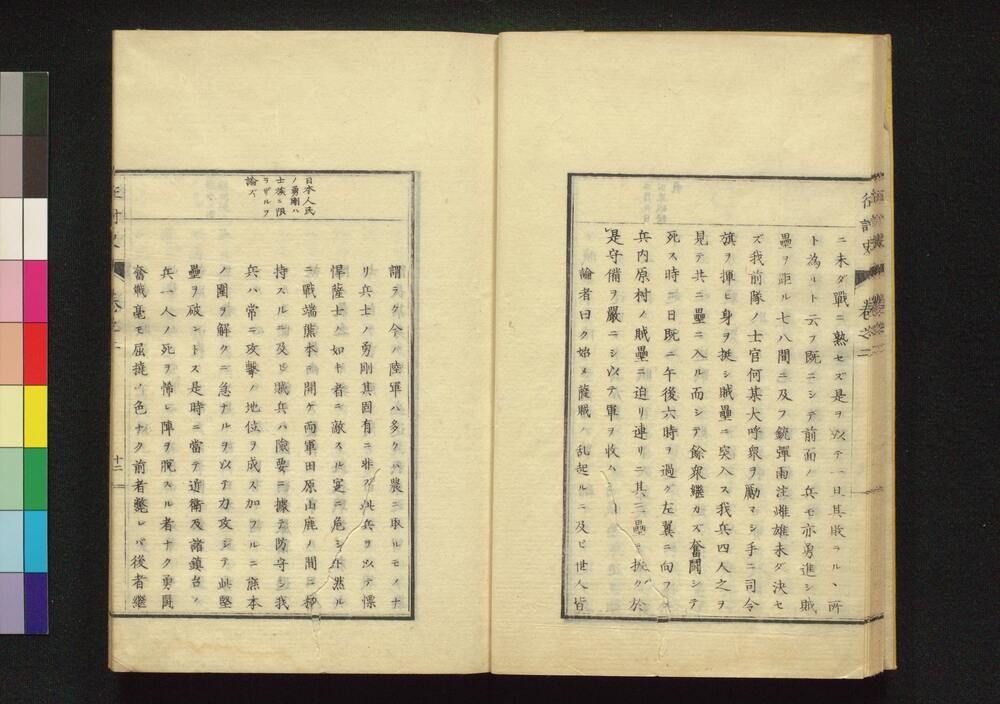 ニ未ダ戰ニ熟セズ是ヲ以テ一旦其敗ラル、所
ト為ルト云フ既ニシテ前面ノ兵モ亦勇進シ賊
壘ヲ距ル七八間ニ及フ銃彈雨注雌雄未ダ決セ
ズ我前隊ノ士官何某大呼衆ヲ勵マシ手ニ司令
旗ヲ揮ヒ身ヲ挺シ賊壘ニ突入ス我兵四人之ヲ
見テ共ニ壘ニ入ル而シテ餘衆繼カズ奮鬪シテ
死ス時ニ日既ニ午後六時ヲ過グ左翼ニ向フ
兵内原村ノ賊壘ニ迫リ連リニ其三壘ヲ拔ク於
是守備ヲ嚴ニシ以テ軍ヲ收ム
論者曰ク始メ薩賊ノ乱起ルニ及ビ世人皆
卷之二
日本人民
ノ勇剛ハ
士族ニ限
ラザルヲ
論ズ
謂ラク今ノ陸軍ハ多クハ農ニ取ルモノナ
リ兵士ノ勇剛其固有ニ非ズ此兵ヲ以テ慓
悍薩士ノ如キ者ニ敵スル寔ニ危シト然ル
ニ戰端熊本ニ開ケ両軍田原山鹿ノ間ニ相
持スルニ及ビ賊兵ハ險要ニ據テ防守シ我
兵ハ常ニ攻撃ノ地位ヲ成ス加フルニ熊本
ノ圍ヲ解クニ急ナルヲ以テ力攻シテ此堅
壘ヲ破ントス是時ニ當テ近衛及諸鎮台ノ
兵一人ノ死ヲ怖レ陣ヲ脱スル者ナク勇鬪
奮戰毫モ屈撓ノ色ナク前者斃レバ後者繼
十二